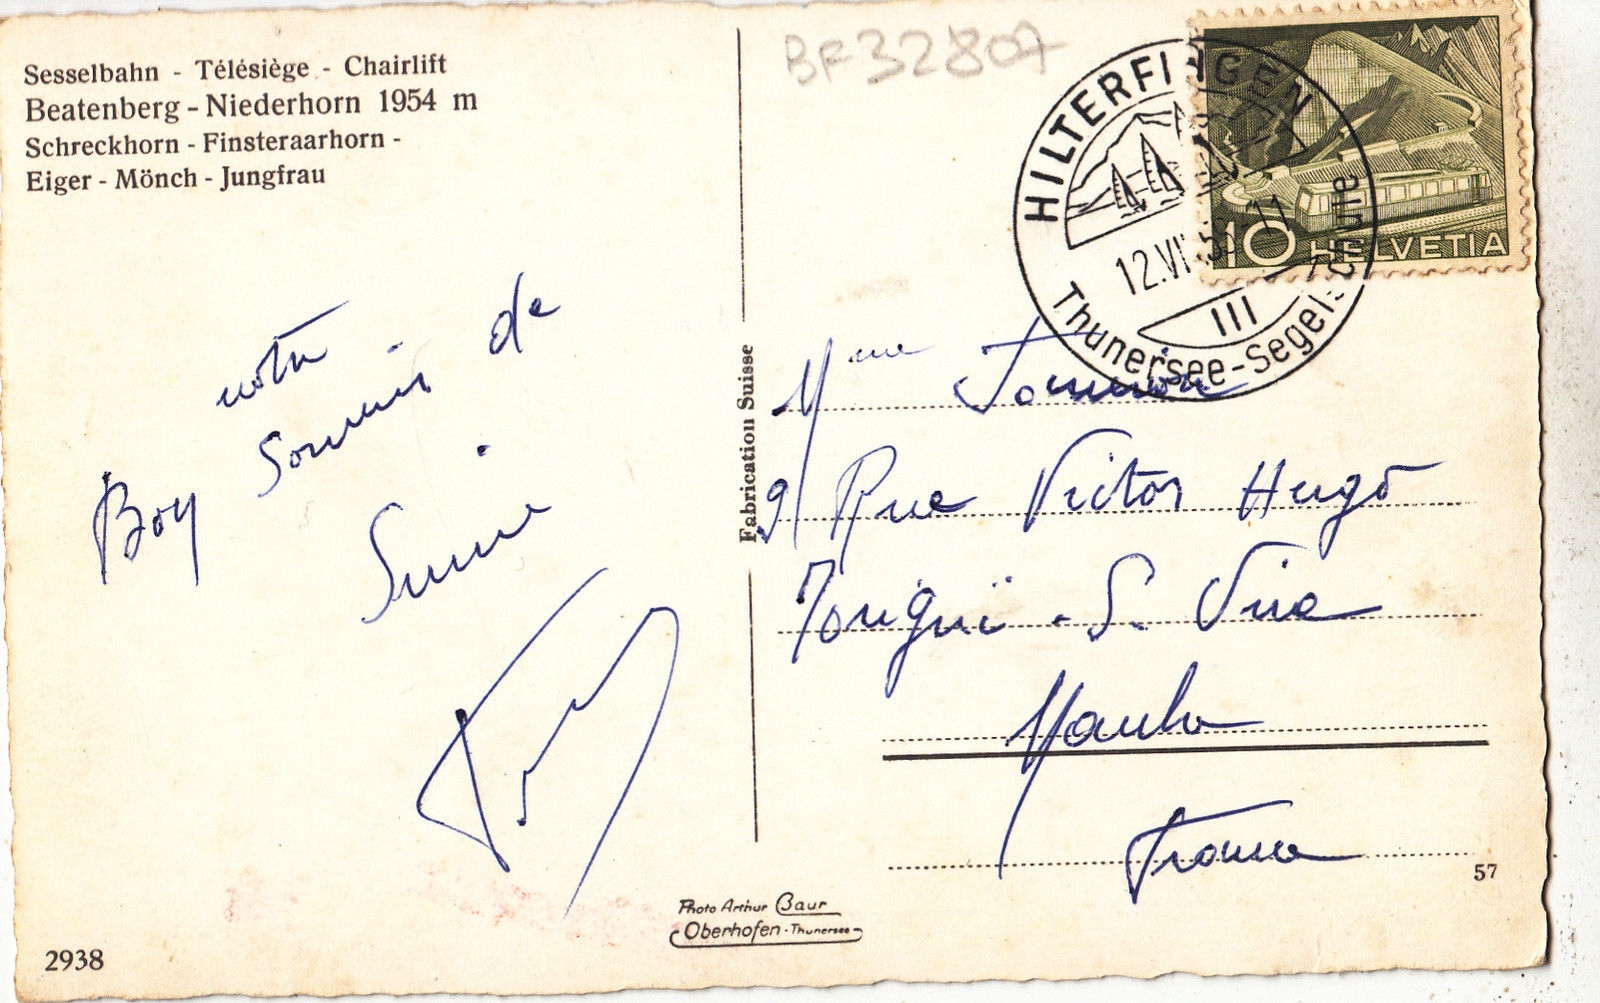 Sesselbahn - Télésiège - Chairlift
Beatenberg - Niederhorn 1954 m
Schreckhorn - Finsteraarhorn -
Eiger - Mönch - Jungfrau
BF32807
HILTERFINGEN
12.VI
11
III
Thunersee-Segel
10 HELVETIA
Souvenir de
Suisse
Fabrication Suisse
Mme
9 Rue Victor Hugo
France
57
Photo Arthur Baur
Oberhofen - Thunersee
2938